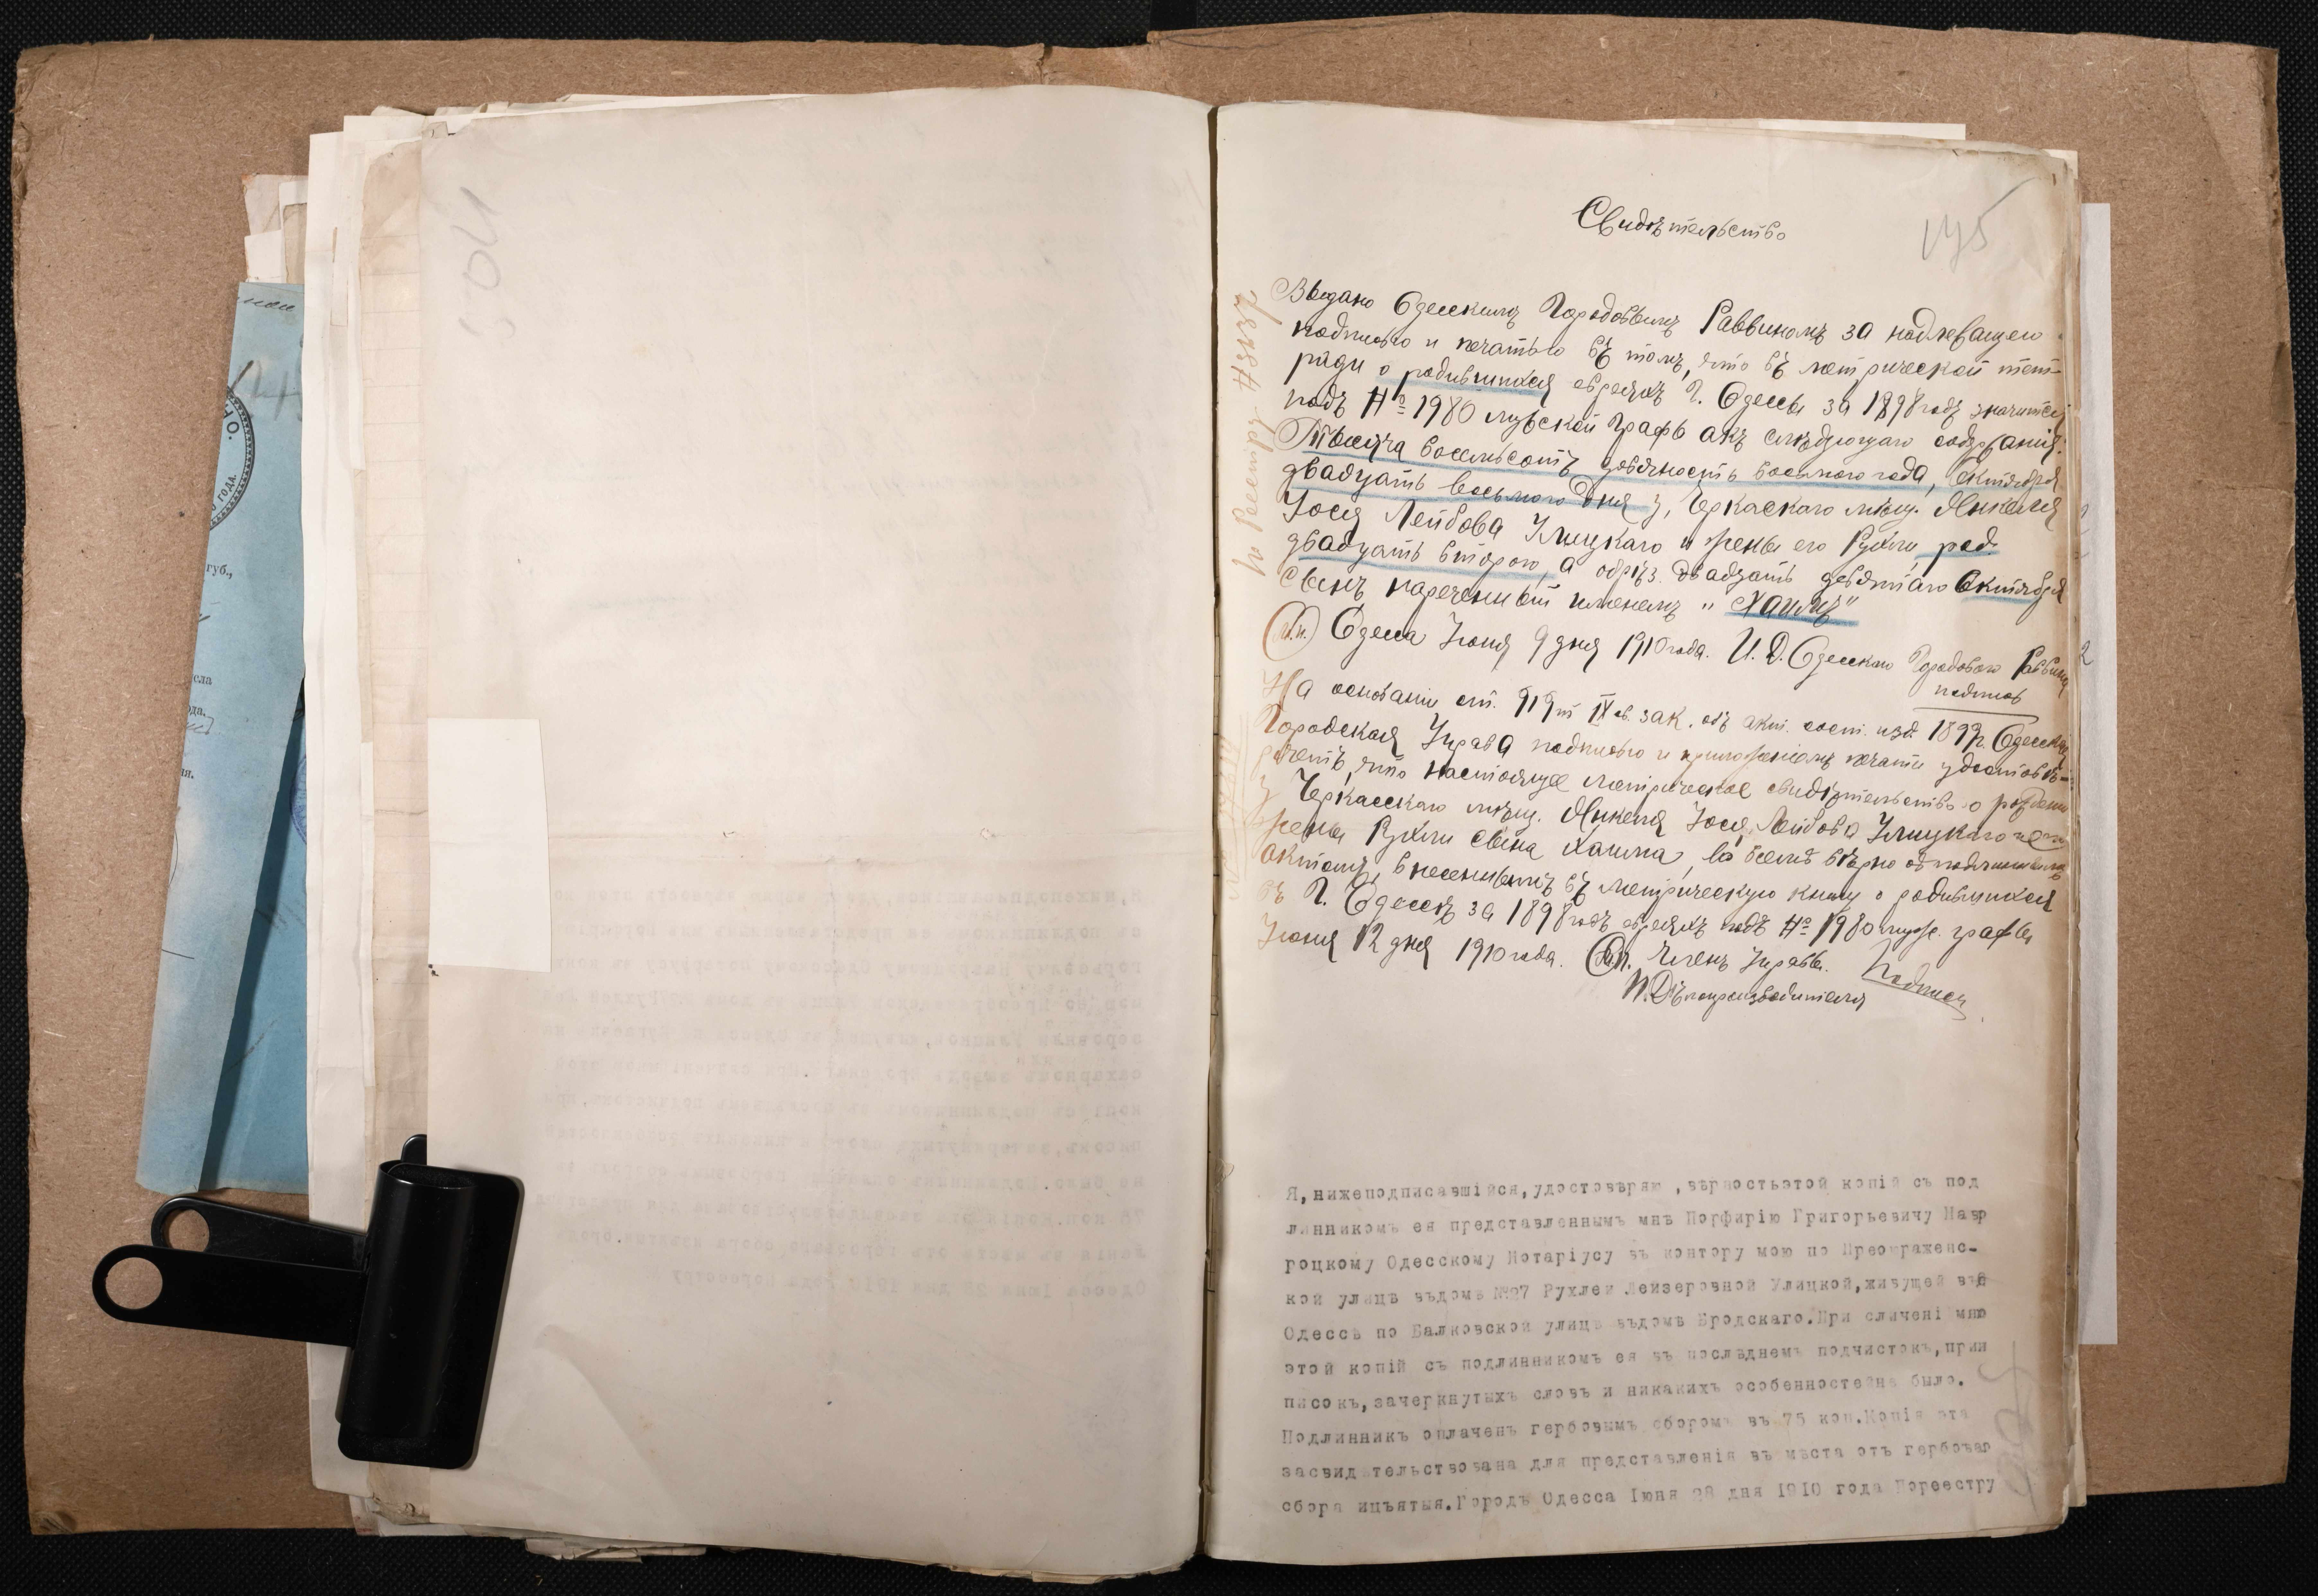 Свидѣтельство
Выдано Одесскимъ Городовымъ Раввиномъ за надлежащею
подписью и печатью въ томъ, что въ метрической тет-
ради о родившихся евреяхъ г. Одессы за 1898 годъ значится
подъ № 1980 мужской графы актъ слѣдующаго содержанія:
Тысяча восемьсотъ девяность восьмого года, Октября
двадцать восьмого дня у Черкаскаго мѣщ. Янкеля
Іося Лейбова Улицкаго и жены его Рухли, род.
двадцать второго, а обрѣз. двадцать девятаго Октября
сынъ нареченный именемъ „Хаимъ"
(М.п.) Одесса Іюня 9 дня 1910 года. И. Д. Одесскаго Городового Раввина
подпись
На основаніи ст. 919 т IX св. зак. объ акт. сост. изд. 1899 г. Одесская
Городская Управа подписью и приложеніемъ печати удостовѣ-
ряетъ, что настоящее метрическое свидѣтельство о рожденіи
у Черкасскаго мѣщ. Янкеля Іося Лейбова Улицкаго и его
жены Рухли сына Хаима, во всемъ вѣрно съ подлиннымъ
актомъ, внесеннымъ въ метрическую книгу о родившихся
въ г. Одессѣ за 1898 годъ евреяхъ подъ № 1980 муж. графы
Іюня 12 дня 1910 года. М.п. Членъ Управы. Подпись
И.Дѣлопроизводителя
по Реестру №
Я,нижеподписавшійся,удостовѣряю ,вѣрностьэтой копій съ под
линникомъ ея представленнымъ мнѣ Порфирію Григорьевичу Навр
роцкому Одесскому Нотаріусу въ контору мою по Преображенс-
кой улицѣ въдомѣ №27 Рухлей Лейзеровной Улицкой,живущей въ
Одессѣ по Балковской улицѣ въдомѣ Бродскаго.При сличені мню
этой копій съ подлинникомъ ея въ послѣднемъ подчистокъ,прип
писокъ,зачеркнутыхъ словъ и никакихъ особенностейне было.
Подлинникъ оплаченъ гербовымъ сборомъ въ 75 коп.Копія эта
засвидѣтельствована для представленія въ мѣста отъ гербоваг
сбора ицъятыя.Городъ Одесса Іюня 28 дня 1910 года Пореестру
губ.,
года.